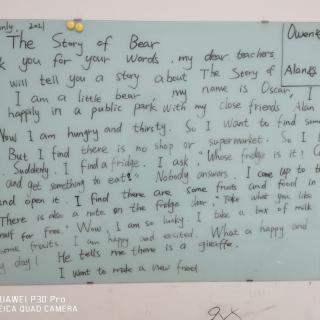 only, 2021
Owen
The Story of Bear
k you for your words, my dear teachers
will tell you a story about The Story of
Alan
I am a little bear, my name is Oscar, I
happily in a public park with my close friends Alan
Now I am hungry and thirsty. So I want to find some
But I find there is no shop or supermarket. So I
Suddenly, I find a fridge. I ask, "Whose fridge is it? C
and get something to eat?" Nobody answers. I come up to t
and open it. I find there are some fruits and food in
There is also a note on the fridge door, "Take what you like
for free." Wow, I am so lucky. I take a box of milk
some fruits. I am happy and excited. What a happy and
y day! He tells me there is a giraffe.
I want to make a new friend
HUAWEI P30 Pro
LEICA QUAD CAMERA